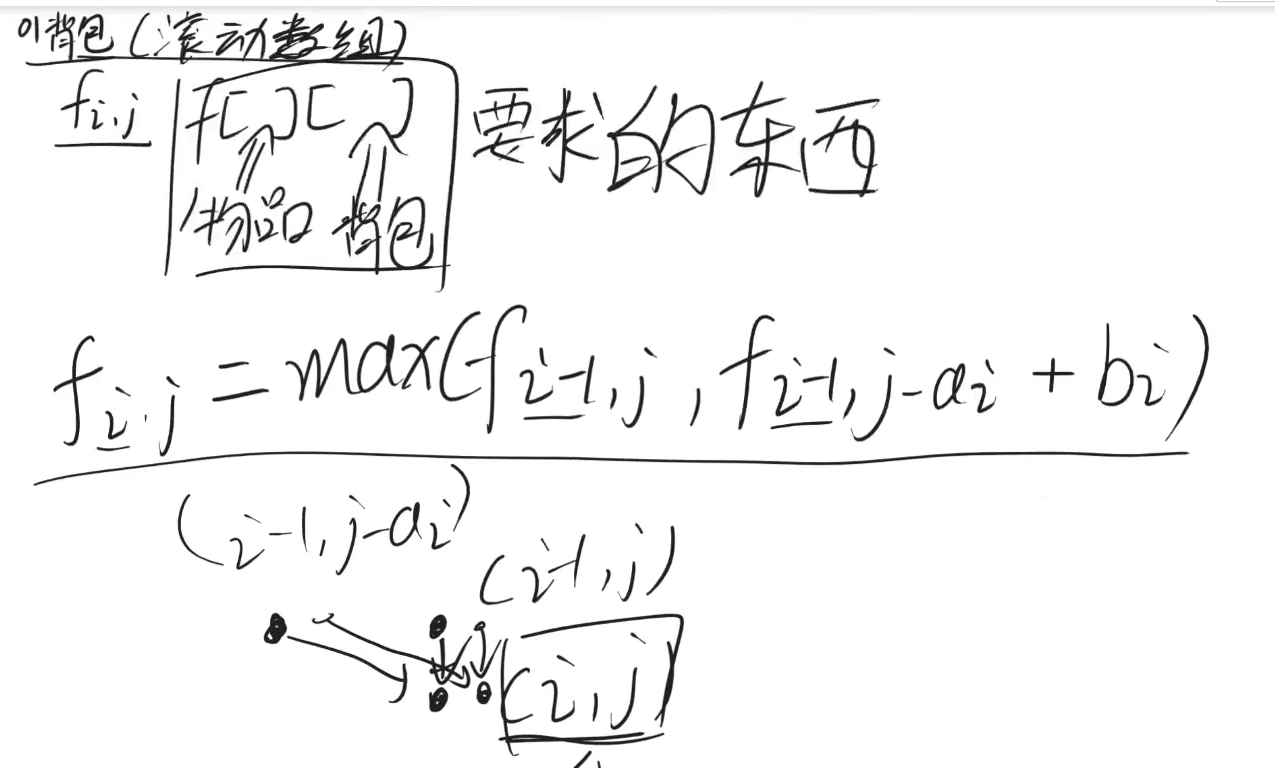 01背包(滚动数组)
fi,j f[ ][ ] 要求的东西
物品 背包
fi,j = max(fi-1,j , fi-1,j-ai + bi)
(i-1,j-ai)
(i-1,j)
(i,j)